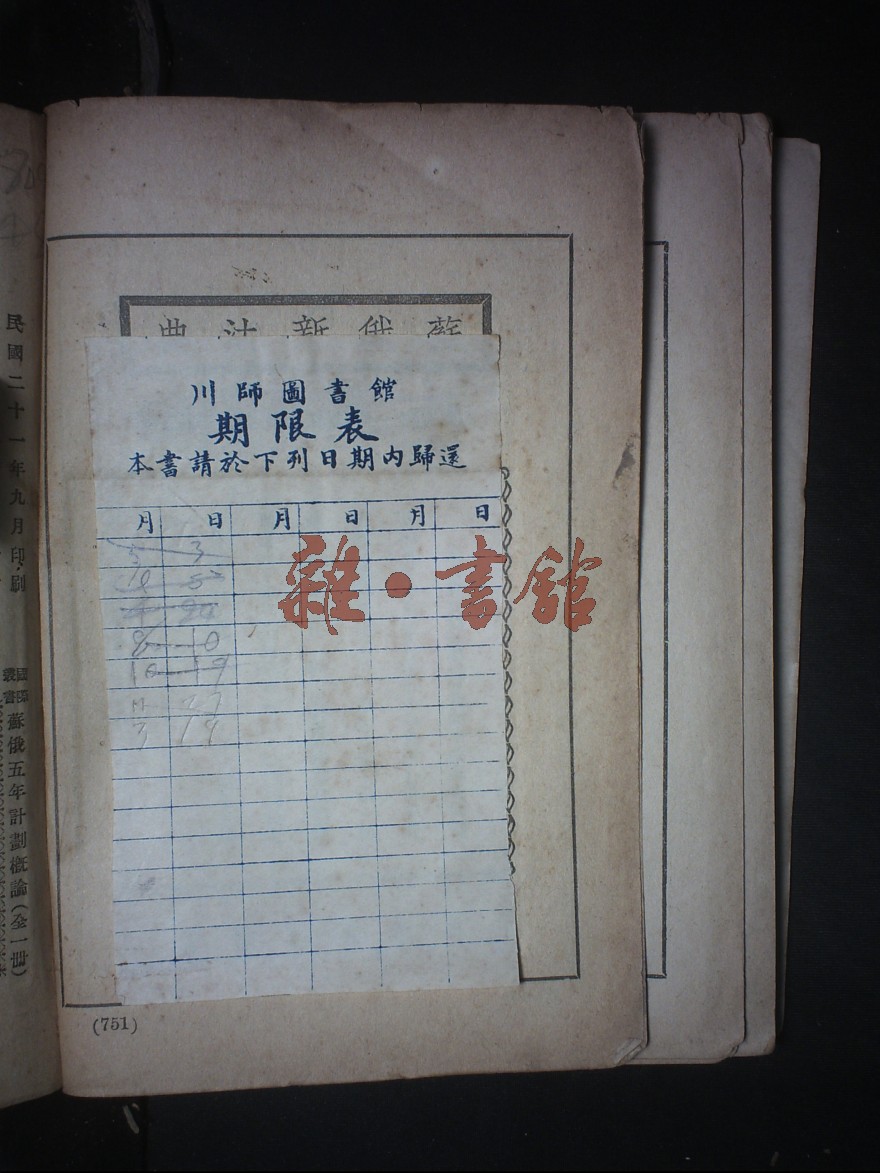 蘇俄新法典
川師圖書館
期限表
本書請於下列日期內歸還
月 日 月 日 月 日
3
8 10
10 19
11 27
3 14
雜·書館
(751)
民國二十一年九月印刷
國際叢書 蘇俄五年計劃概論（全一冊）